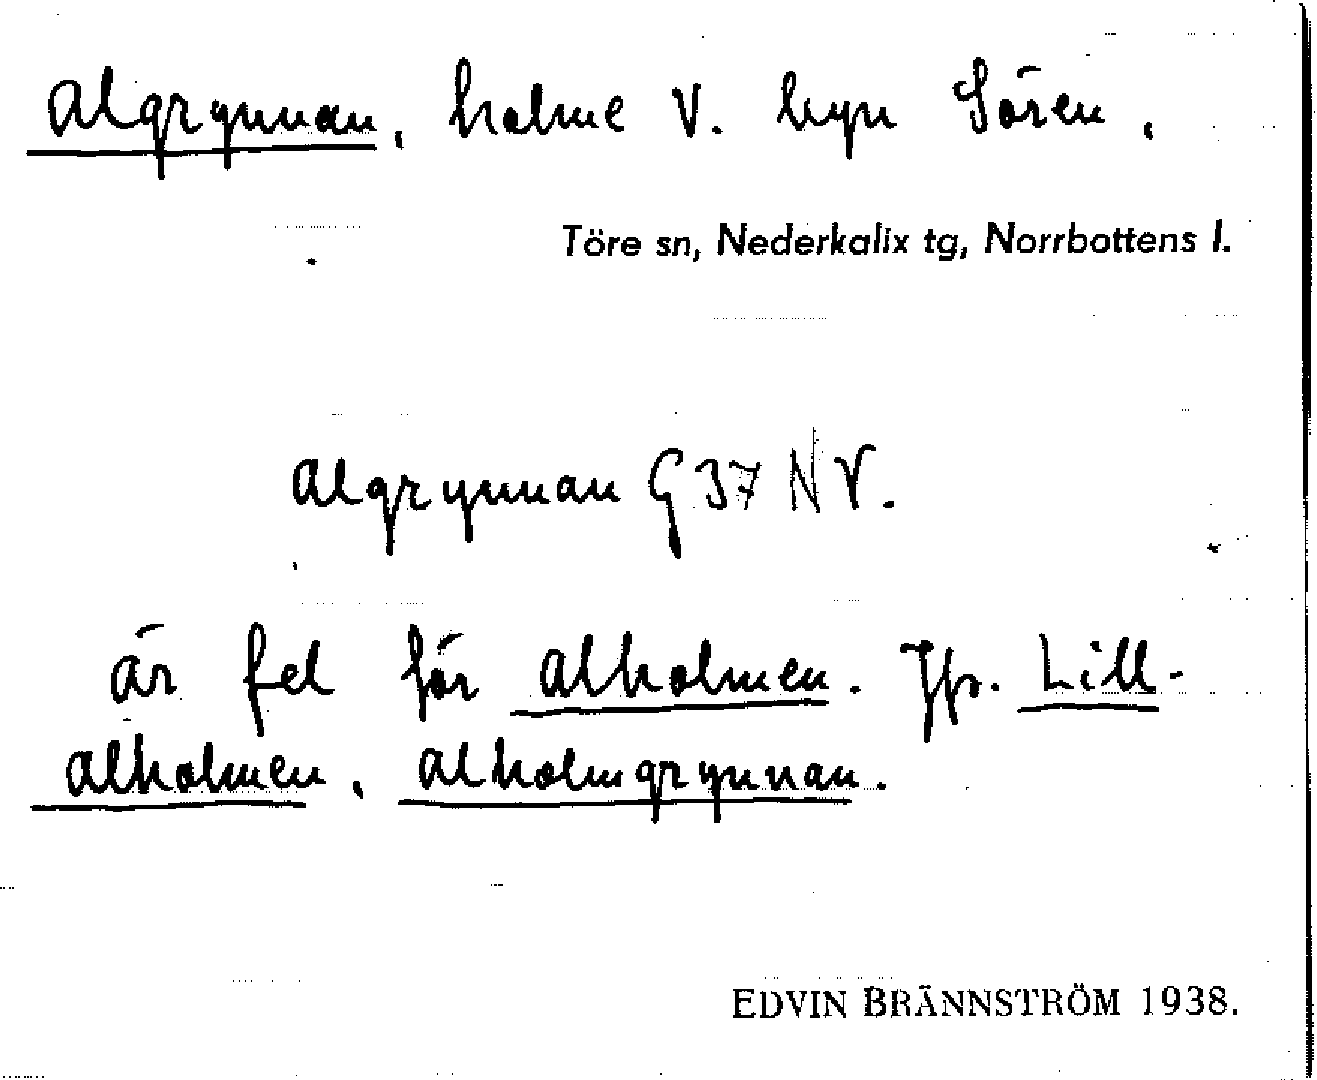 Algrynnan, holme V. byn Sören,
Töre sn, Nederkalix tg, Norrbottens l.
Algrynnan G 37 N V.
är fel för Alholmen. Jfr. Lill-
alholmen, Alholmgrynnan.
EDVIN BRÄNNSTRÖM 1938.